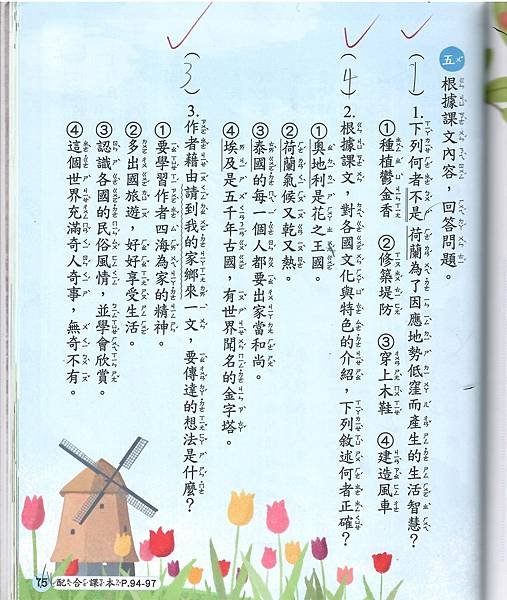 五 根據課文內容，回答問題。
(1) 1.下列何者不是荷蘭為了因應地勢低窪而產生的生活智慧？
①種植鬱金香 ②修築堤防 ③穿上木鞋 ④建造風車
(4) 2.根據課文，對各國文化與特色的介紹，下列敘述何者正確？
①奧地利是花之王國。
②荷蘭氣候又乾又熱。
③泰國的每一個人都要出家當和尚。
④埃及是五千年古國，有世界聞名的金字塔。
(3) 3.作者藉由請到我的家鄉來一文，要傳達的想法是什麼？
①要學習作者四海為家的精神。
②多出國旅遊，好好享受生活。
③認識各國的民俗風情，並學會欣賞。
④這個世界充滿奇人奇事，無奇不有。
75 配合課本P.94-97